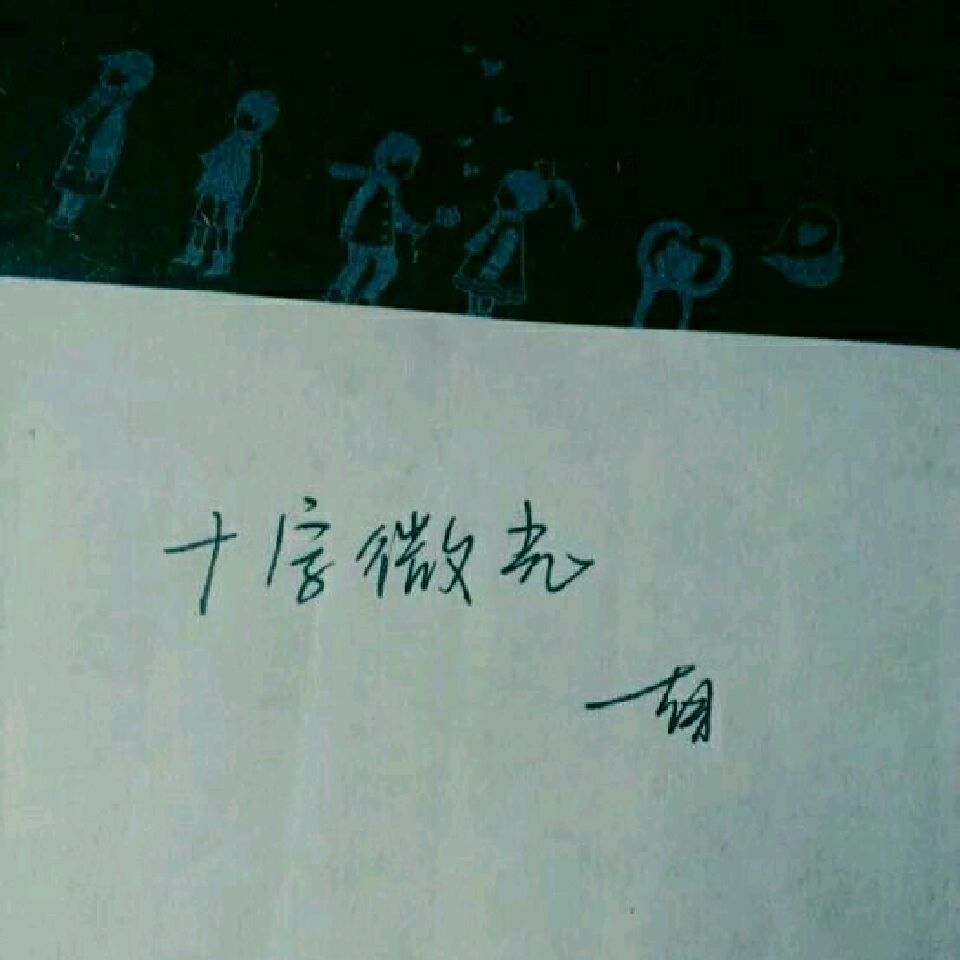 十字微光